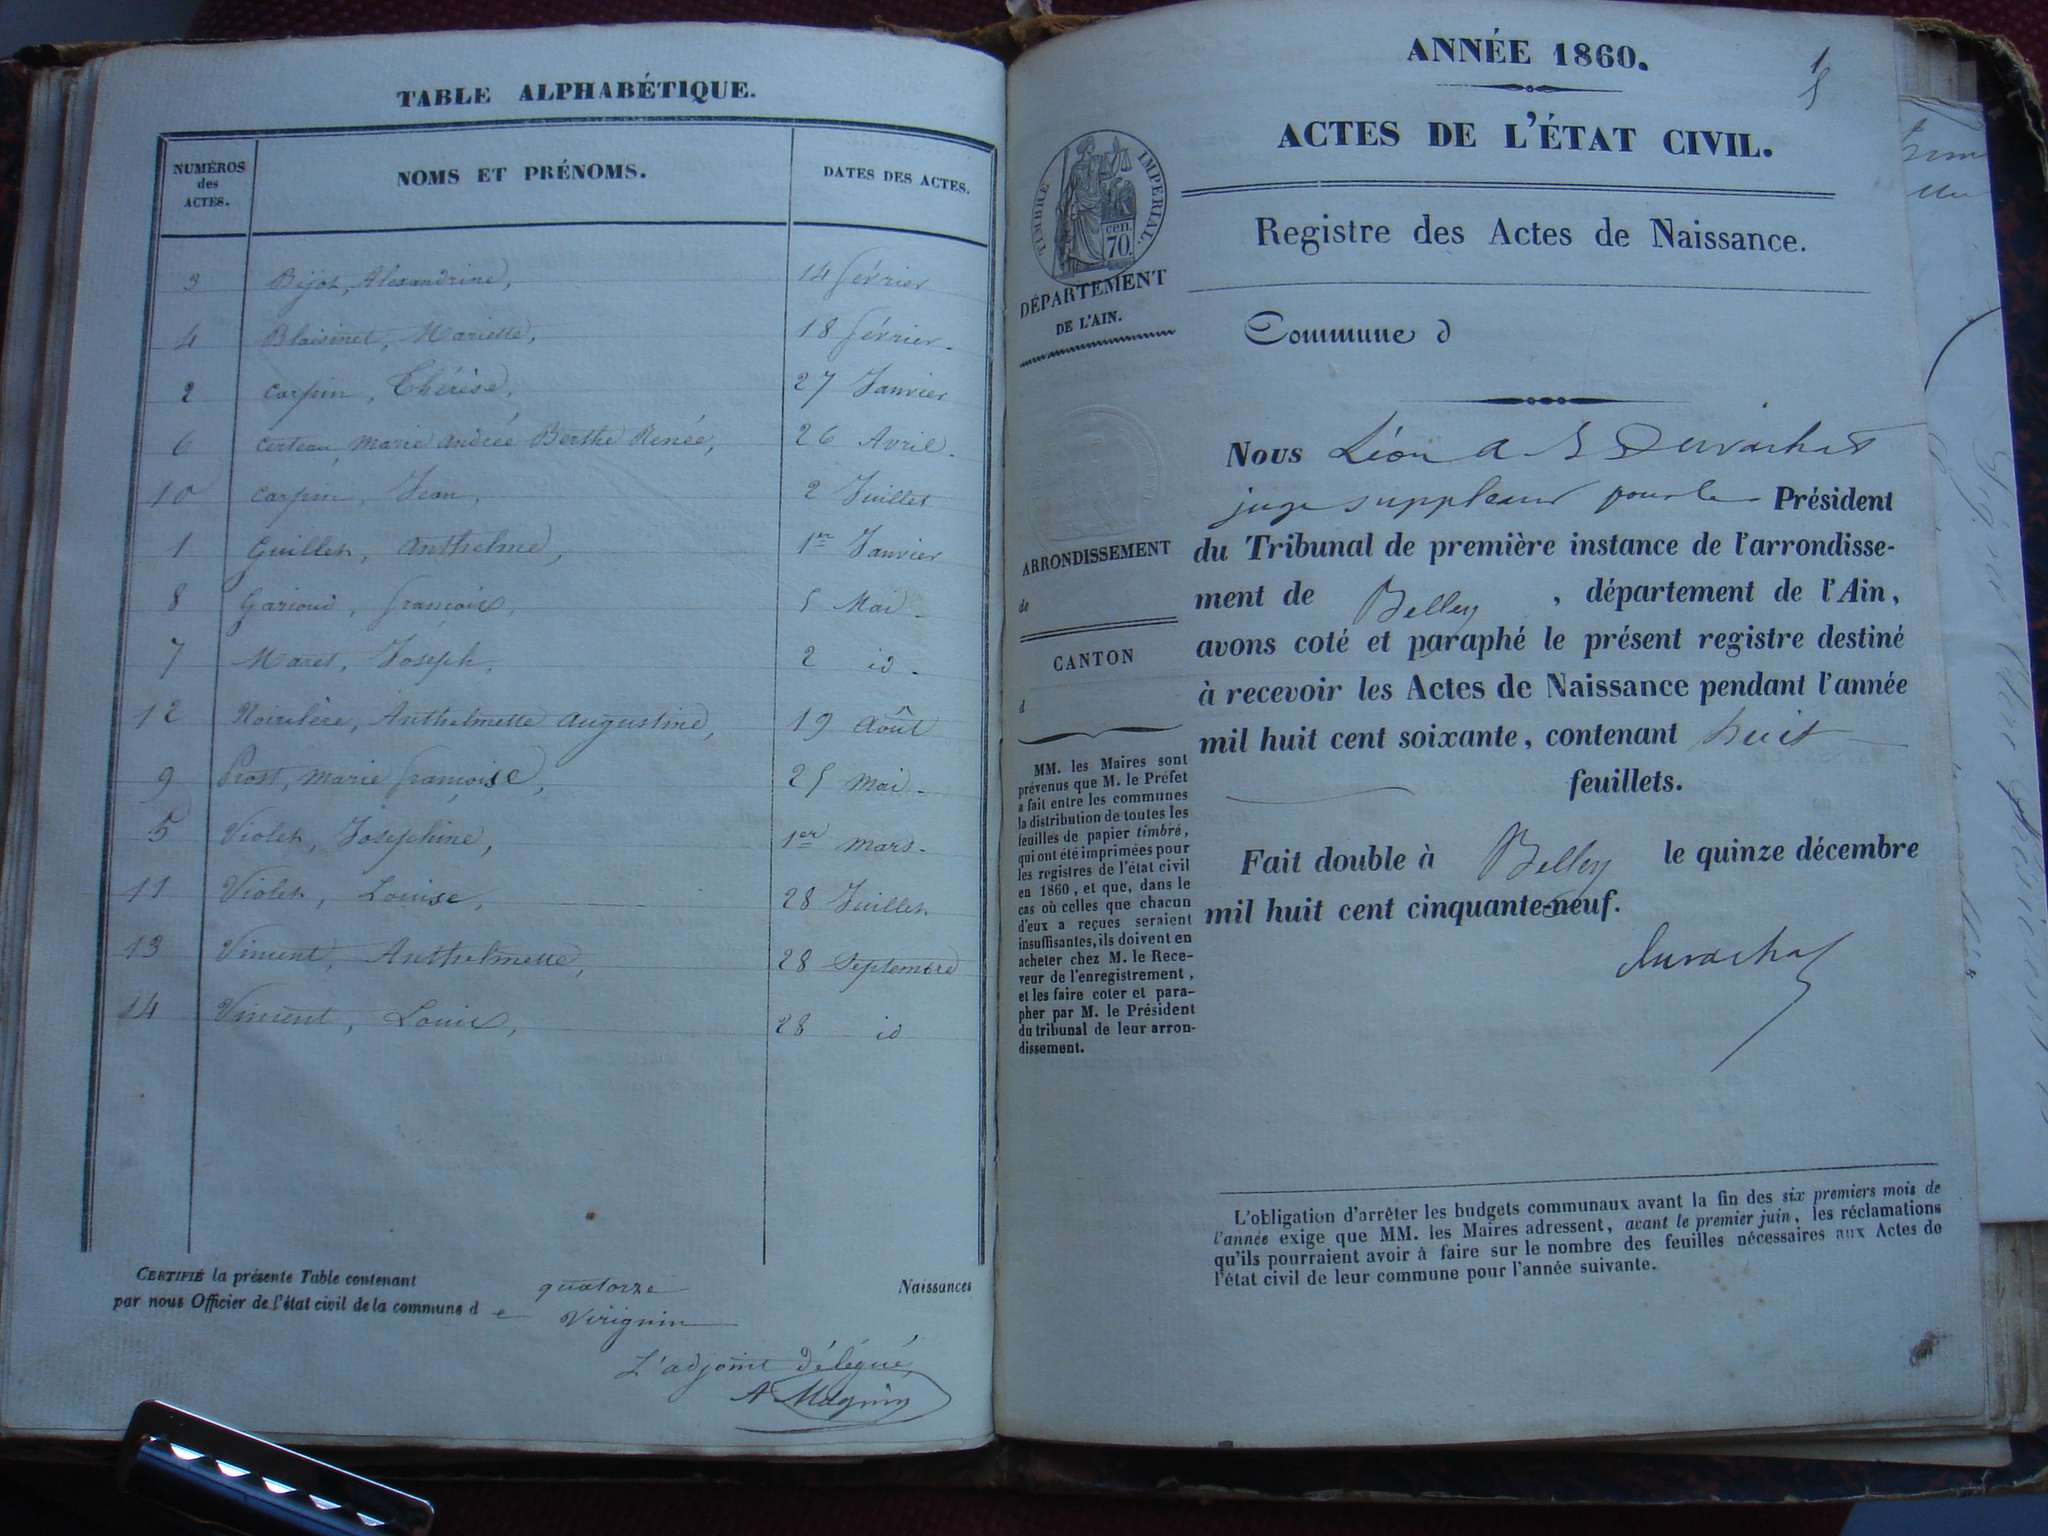 TABLE ALPHABÉTIQUE.
NUMÉROS des ACTES. NOMS ET PRÉNOMS. DATES DES ACTES.
3 Bijot, Alexandrine, 14 février
4 Blaisinet, Mariette, 18 février.
2 Carpin, Thérèse, 27 Janvier
6 Certeau Marie Andrée Berthe Renée, 26 Avril.
10 Carpin, Jean, 2 Juillet
1 Guillet, Anthelme, 1er Janvier
8 François, 5 Mai.
7 Maret, Joseph, 2 id.
12 Anthelmette Augustine, 19 Août
9 Prost, Marie Françoise, 25 Mai.
5 Violet, Joséphine, 1er Mars.
11 Violet, Louise, 28 Juillet
13 Vincent, Anthelmette, 28 Septembre
14 Vincent, Louis, 28 id
CERTIFIÉ la présente Table contenant quatorze Naissances
par nous Officier de l'état civil de la commune de Virignin
L'adjoint délégué,
A Magnin
ANNÉE 1860.
1
ACTES DE L'ÉTAT CIVIL.
TIMBRE IMPÉRIAL.
cen. 70.
Registre des Actes de Naissance.
DÉPARTEMENT
DE L'AIN.
Commune d
ARRONDISSEMENT
de
CANTON
d
MM. les Maires sont
prévenus que M. le Préfet
a fait entre les communes
la distribution de toutes les
feuilles de papier timbré,
qui ont été imprimées pour
les registres de l'état civil
en 1860, et que, dans le
cas où celles que chacun
d'eux a reçues seraient
insuffisantes, ils doivent en
acheter chez M. le Rece-
veur de l'enregistrement,
et les faire coter et para-
pher par M. le Président
du tribunal de leur arron-
dissement.
Nous Léon
juge suppléant pour le Président
du Tribunal de première instance de l'arrondisse-
ment de Belley, département de l'Ain,
avons coté et paraphé le présent registre destiné
à recevoir les Actes de Naissance pendant l'année
mil huit cent soixante, contenant huit
feuillets.
Fait double à Belley le quinze décembre
mil huit cent cinquante-neuf.
L'obligation d'arrêter les budgets communaux avant la fin des six premiers mois de
l'année exige que MM. les Maires adressent, avant le premier juin, les réclamations
qu'ils pourraient avoir à faire sur le nombre des feuilles nécessaires aux Actes de
l'état civil de leur commune pour l'année suivante.